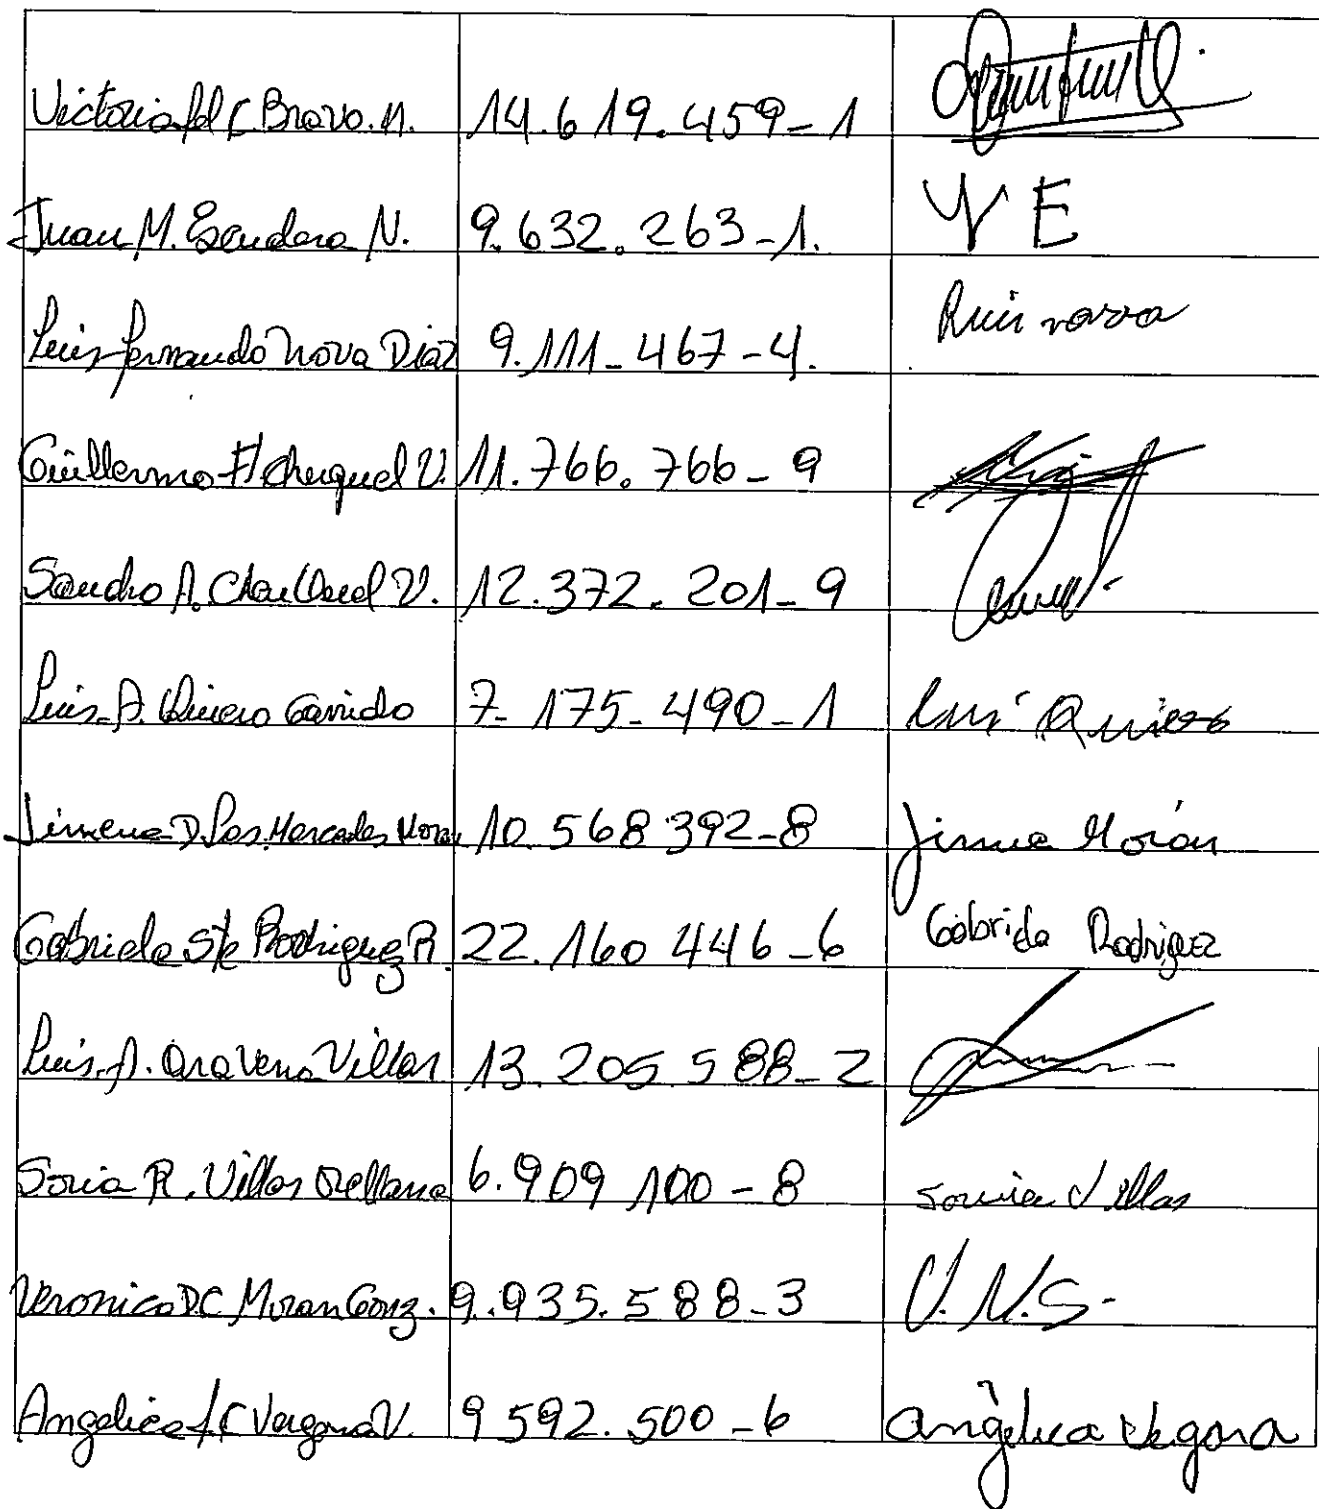 Victoria del C. Bravo. M. 14.619.459-1
Juan M. Escudero N. 9.632.263-1. E
Luis Fernando Nova Diaz 9.111-467-4. Luis nova
Guillermo 11.766.766-9
Sandro A. V. 12.372.201-9
Luis A. Quiero Garrido 7-175-490-1 Luis Quiero
Jimena D. Las Mercedes Moran 10.568392-8 Jimena Morán
Gabriela Rodriguez R. 22.160446-6 Gabriela Rodriguez
Luis. A. Aravena Villar 13.205588-2
Sonia R. Villar Orellana 6.909100-8 Sonia Villar
Veronica D.C Moran Gonz. 9.935.588-3 V.M.G.
Angelica d C Vergara V. 9592.500-6 Angelica Vergara